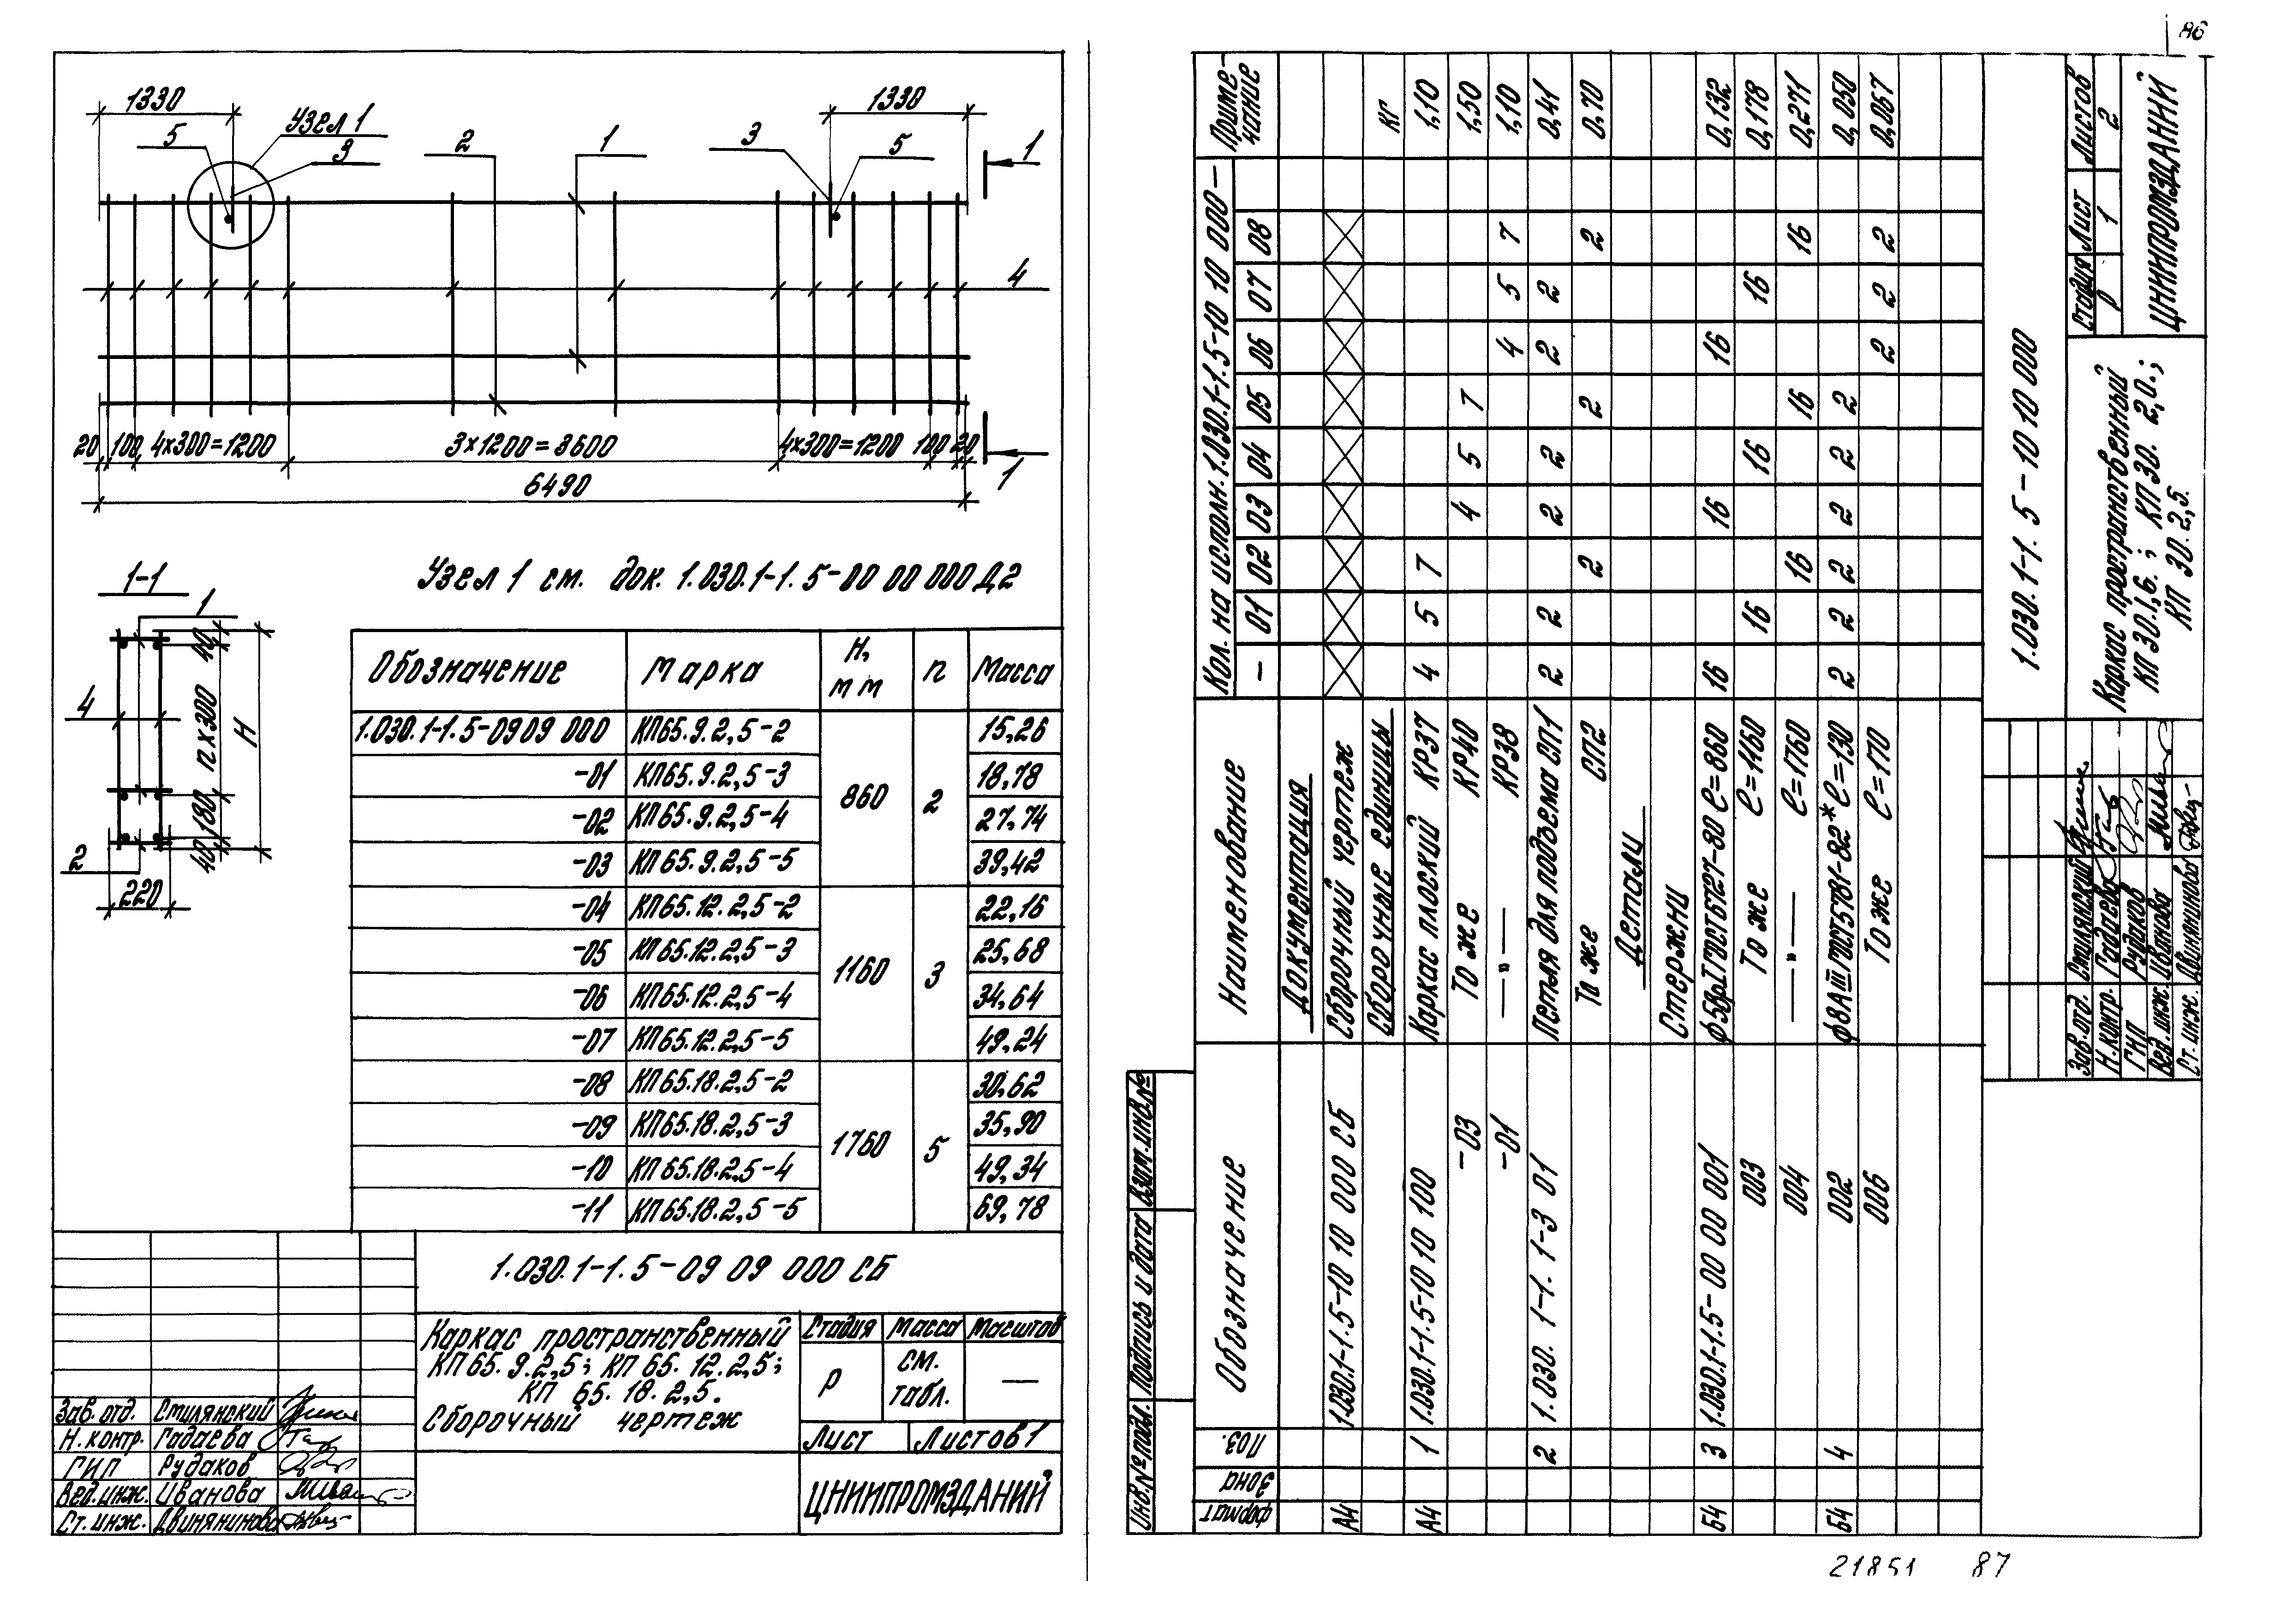 86
1330
1330
Узел 1
5
3
2
1
3
5
1
4
20 100 4×300=1200 3×1200=3600 4×300=1200 100 20
6490
1
Узел 1 см. док. 1.030.1-1.5-00 00 000 Д2
1-1
1
40
4
n×300
H
180
40
2
220
Обозначение Марка H, мм n Масса
1.030.1-1.5-09 09 000 КП65.9.2,5-2 860 2 15,26
-01 КП65.9.2,5-3 18,78
-02 КП65.9.2,5-4 27,74
-03 КП65.9.2,5-5 39,42
-04 КП65.12.2,5-2 1160 3 22,16
-05 КП65.12.2,5-3 25,68
-06 КП65.12.2,5-4 34,64
-07 КП65.12.2,5-5 49,24
-08 КП65.18.2,5-2 1760 5 30,62
-09 КП65.18.2,5-3 35,90
-10 КП65.18.2,5-4 49,34
-11 КП65.18.2,5-5 69,78
1.030.1-1.5-09 09 000 СБ
Каркас пространственный
КП65.9.2,5; КП 65.12.2,5;
КП 65.18.2,5.
Сборочный чертеж
Стадия Масса Масштаб
Р см. табл. —
Лист Листов 1
ЦНИИПРОМЗДАНИЙ
Зав. отд. Смилянский
Н. контр. Гадаева
ГИП Рудаков
Вед. инж. Иванова
Ст. инж. Двинянинова
Формат Зона Поз. Обозначение Наименование Кол. на исполн. 1.030.1-1.5-10 10 000- Приме-
чание
- 01 02 03 04 05 06 07 08
Документация
А4 1.030.1-1.5-10 10 000 СБ Сборочный чертеж
Сборочные единицы кг
А4 1 1.030.1-1.5-10 10 100 Каркас плоский КР37 4 5 7 1,10
-03 То же КР40 4 5 7 1,50
-01 —»— КР38 4 5 7 1,10
2 1.030.1-1.1-3 01 Петля для подъема СП1 2 2 2 2 2 2 0,41
То же СП2 2 2 2 0,70
Детали
Стержни
Б4 3 1.030.1-1.5-00 00 001 ф5ВрI ГОСТ6727-80 ℓ=860 16 16 16 0,132
003 То же ℓ=1160 16 16 16 0,178
004 —»— ℓ=1760 16 16 16 0,271
Б4 4 002 ф8АIII ГОСТ5781-82* ℓ=130 2 2 2 2 2 2 0,050
006 То же ℓ=170 2 2 2 0,067
1.030.1-1.5-10 10 000
Каркас пространственный
КП 30.1,6.; КП 30.2,0.;
КП 30.2,5.
Стадия Лист Листов
Р 1 2
ЦНИИПРОМЗДАНИЙ
Зав. отд. Смилянский
Н. контр. Гадаева
ГИП Рудаков
Вед. инж. Иванова
Ст. инж. Двинянинова
Инв. № подл. Подпись и дата Взам. инв. №
21851 87